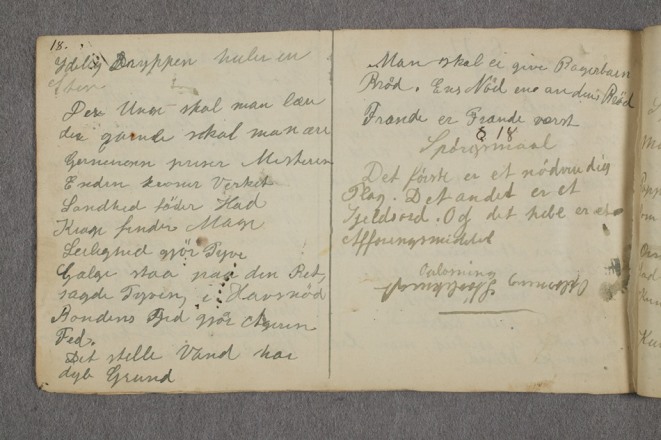 18.
Ydelig Dryppen huler en
Sten
Den Unge skal man lære
den gamle skal man ære
Gerningen priser Mesteren
Enden kroner Verket
Sandhed föder Had
Krage finder Mage
Leilighed gjör Tyve
Galge staa paa din Ret,
sagde Tyven, i Havsnöd
Bondens Fjed gjör Ageren
Fed.
Det stille Vand har
dyb Grund
Man skal ei give Bagerbarn
Bröd. Ens Nöd en andens Bröd
Frænde er Frænde værst
18
Spörgsmaal
Det förste er et nödvendig
Plag. Det andet er et
Og det hele er et
Oplösning